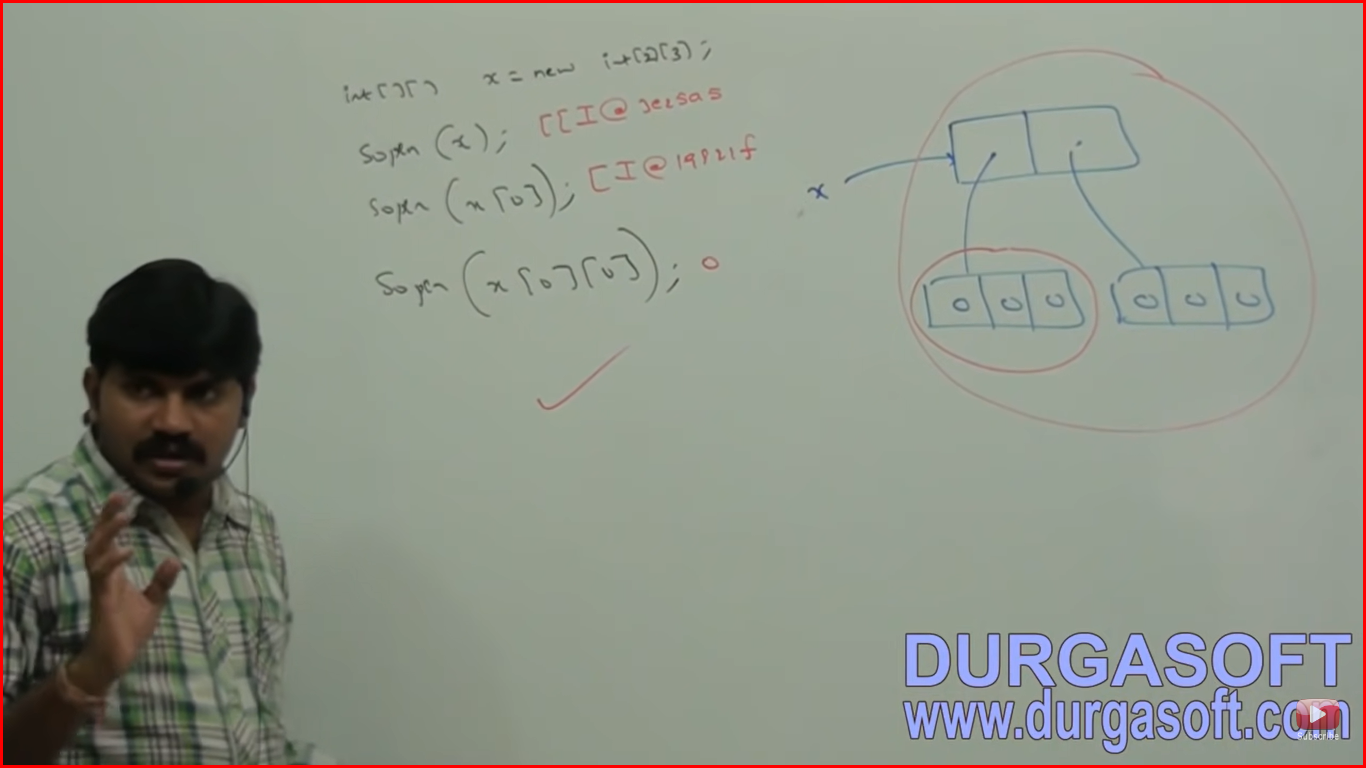 int[][] x = new int[2][3];
Sopln(x); [[I@3e25a5
Sopln(x[0]); [I@19821f
Sopln(x[0][0]); 0
x
0 0 0 0 0 0
DURGASOFT
www.durgasoft.com
Subscribe